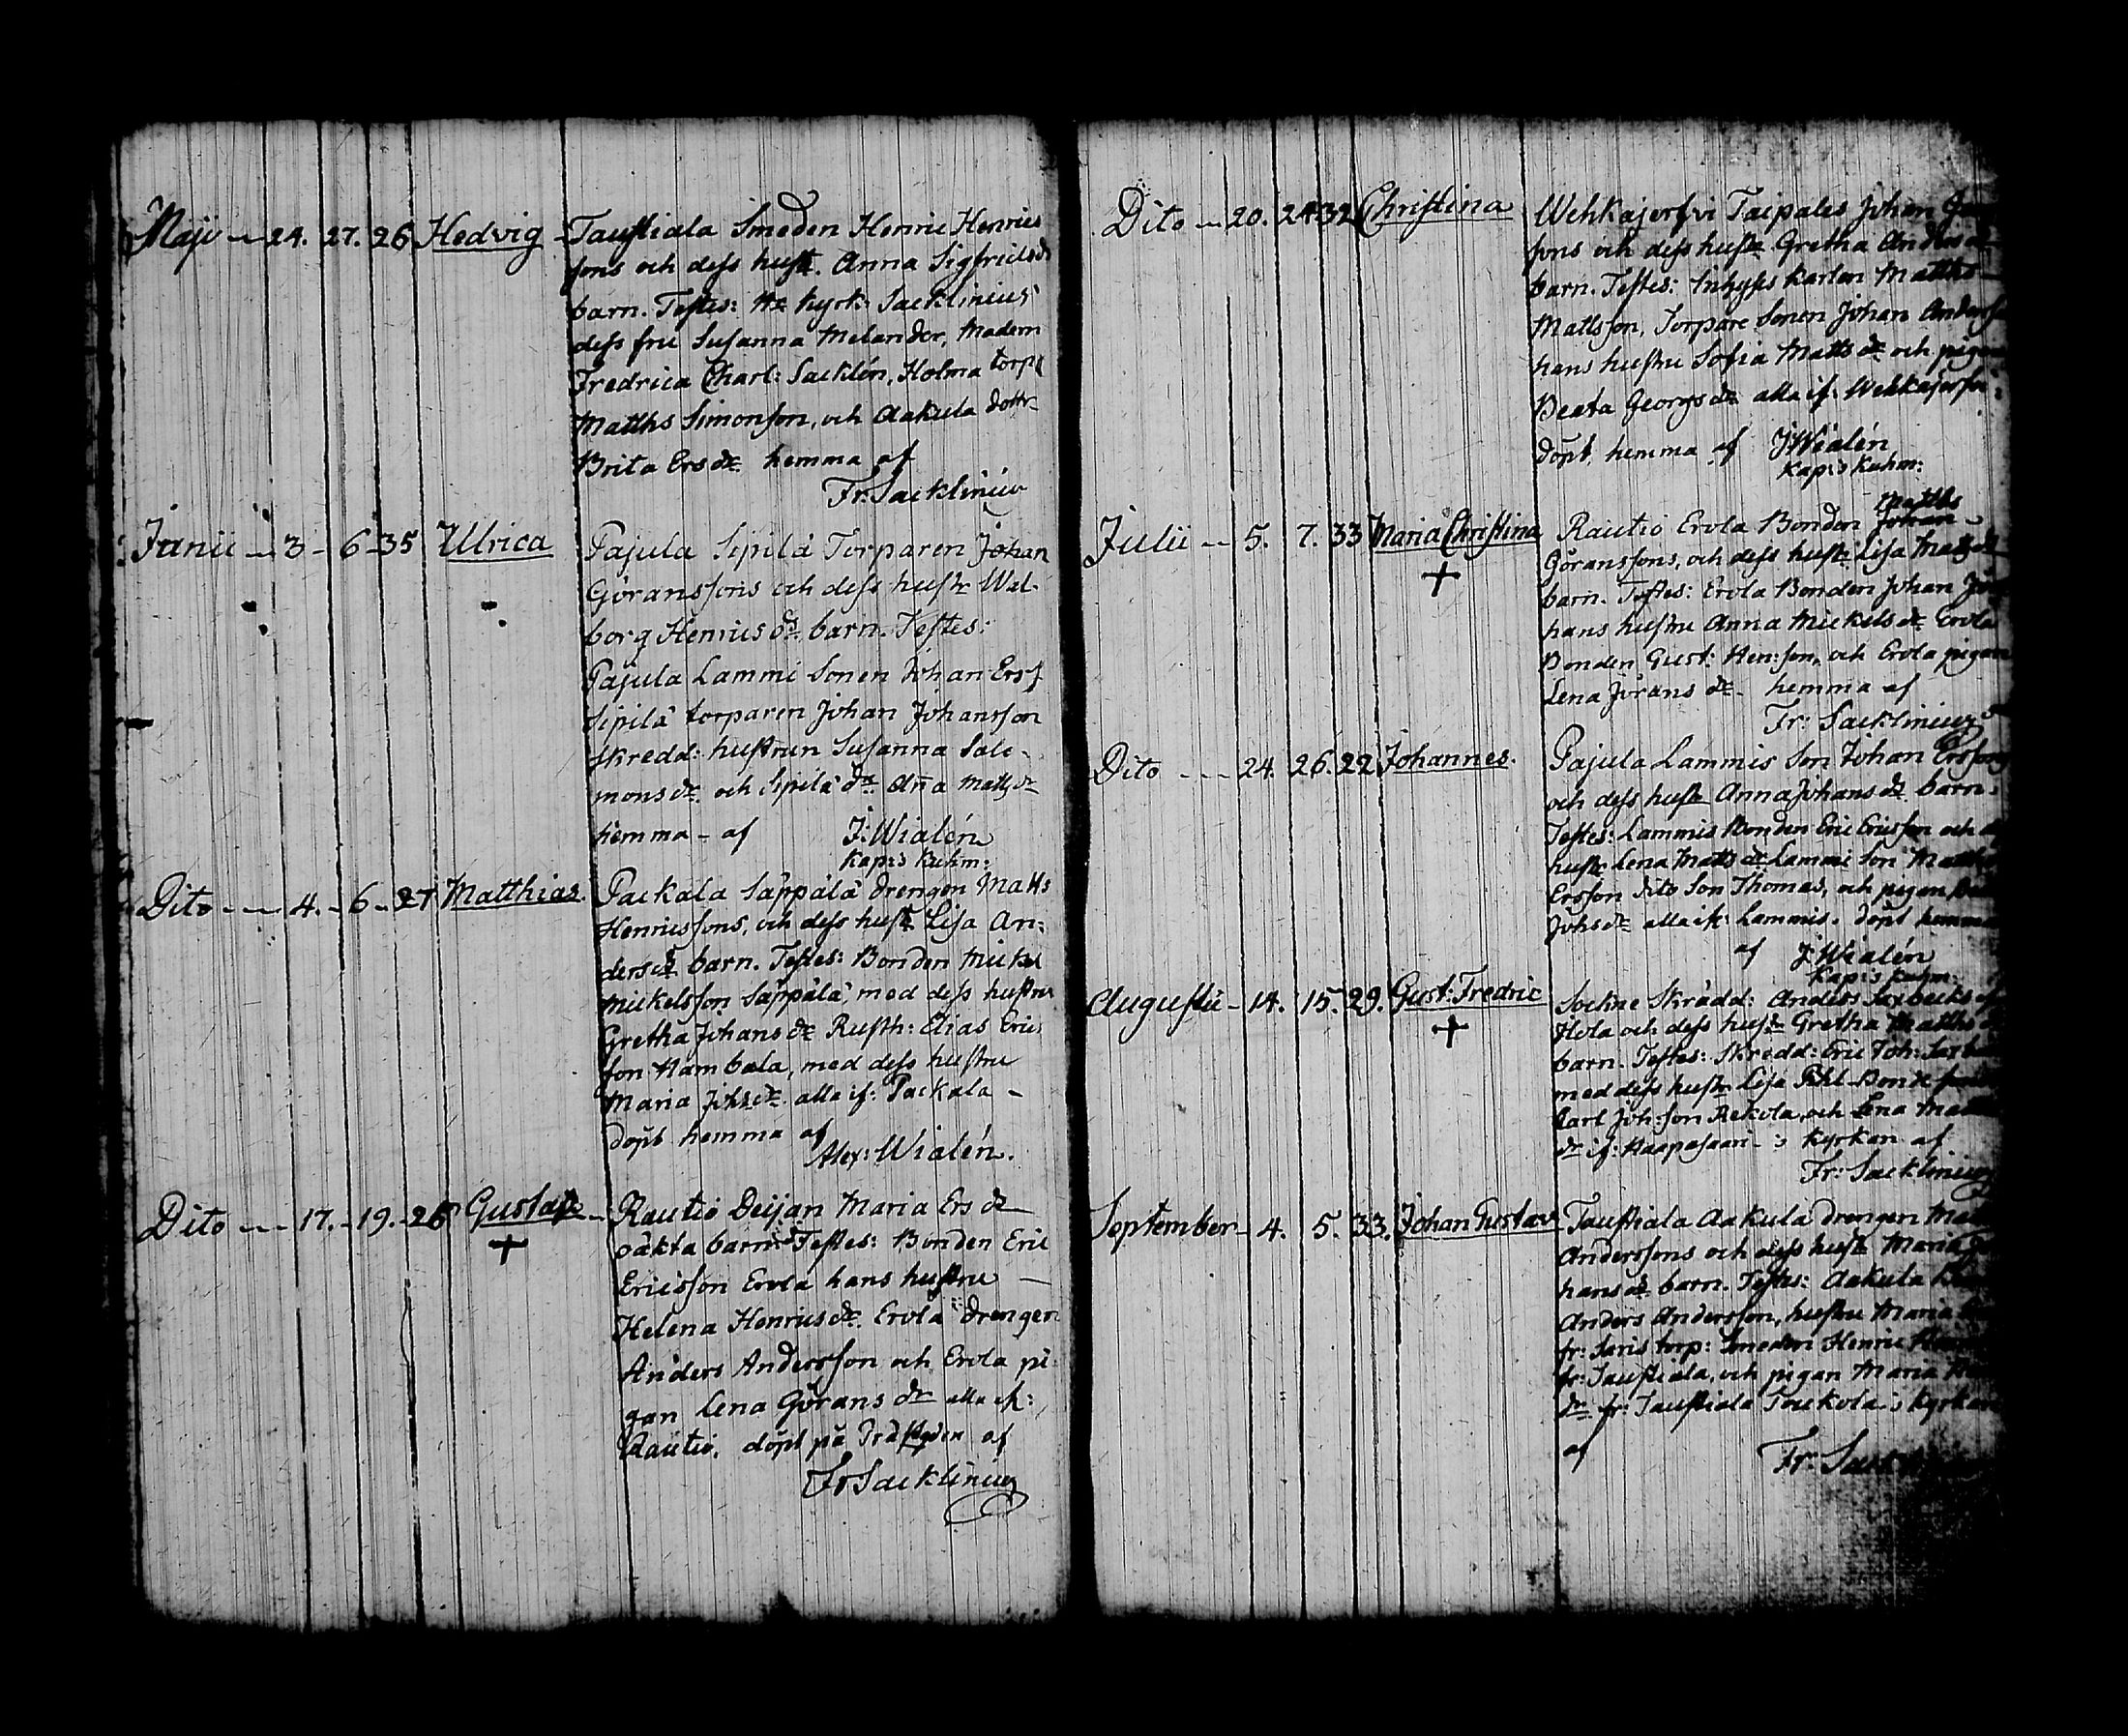 Maji — 24. 27. 26 Hedvig — Taustiala Smeden Henric Henrics
sons och dess hust. Anna Sigfridsdr
barn. Testes: Hr Kyrk: Sacklinius
dess fru Susanna Melander, Madem
Fredrica Charl: Sacklén, Holma torp:
Matths Simonson, och Aakula dottr
Brita Ersdr hemma af
Fr. Sacklinius
Junii — 3 - 6 - 35 Ulrica Pajula Sipilä Torparen Johan
Göranssons och dess hustr Wal-
borg Henricsdr barn. Testes:
Pajula Lammi Sonen Johan Erss
Sipilä torparen Johan Johansson
skredd: hustrun Susanna Salo-
monsdr och Sipilä dr Aña Mattsdr
hemma - af J: Wialén
Kap: i Kuhm:
Dito — 4. - 6 - 27 Matthias. Packala Säppälä drengen Matts
Henricssons, och dess hustr Lisa An-
dersdr barn. Testes: Bonden Mickel
Mickelsson Säppälä, med dess hustru
Gretha Johansdr Rusth: Elias Eric-
son Hambala, med dess hustru
Maria Johsdr alla if: Packala -
döpt hemma af
Alex: Wialén.
Dito — 17. - 19. - 26 Gustaf — Rautio Deijan Maria Ersdr
oäkta barn Testes: Bonden Eric
Ericsson Erola hans hustru —
Helena Henricsdr Erola drengen
Anders Andersson och Erola pi-
gan Lena Göransdr alla if:
Rautio. döpt på Prästgden af
Fr Sacklinius
Dito — 20. 24. 32 Christina Wehkajerfvi Taipales Johan
sons och dess hustr Gretha Anders
barn. Testes: Inhyses karlen Matths
Mattsson, Torpare Sonen Johan Anderss
hans hustru Sofia Mattsdr och pigan
Beata Georgsdr alla if: Wehkajerfvi
döpt hemma af J Wialén
Kap: i Kuhm:
Julii — 5. 7. 33 Maria Christina Rautio Erola Bonden Johan Matths
Göranssons, och dess hustr Lisa Mattsdr
barn. Testes: Erola Bonden Johan
hans hustru Anna Mickelsdr Erola
Bonden Gust: Hen:son, och Erola pigan
Lena Jöransdr - hemma af
Fr: Sacklinius
Dito — 24. 26. 22 Johannes. Pajula Lammis Son Johan Erssons
och dess hustr Anna Johansdr barn.
Testes: Lammis Bonden Eric Ericsson och
hustr Lena Mattsdr Lammi Son Matths
Ersson dito Son Thomas, och pigan
Johsdr alla if: Lammis. döpt hemma
af J: Wialén
Kap: i Kuhm:
Augusti - 14. 15. 29. Gust: Fredric Sockne Skrädd: Anders Saxbecks
Hola och dess hustr Gretha Matths
barn. Testes: Skredd: Eric Joh:
med dess hustr Lisa Pihl Bonde
Carl Joh:son Rekola, och Lena
dr if: Haapasaari - i Kyrkan af
Fr: Sacklinius
September - 4. 5. 33. Johan Gustav Taustiala Aakula drengen
Anderssons och dess hustr Maria
hansdr barn. Testes: Aakula
Anders Andersson, hustru Maria
fr: Saris torp: Smeden Henric
fr: Taustiala, och pigan Maria
dr fr: Taustiala Toukola. i Kyrkan
af Fr: